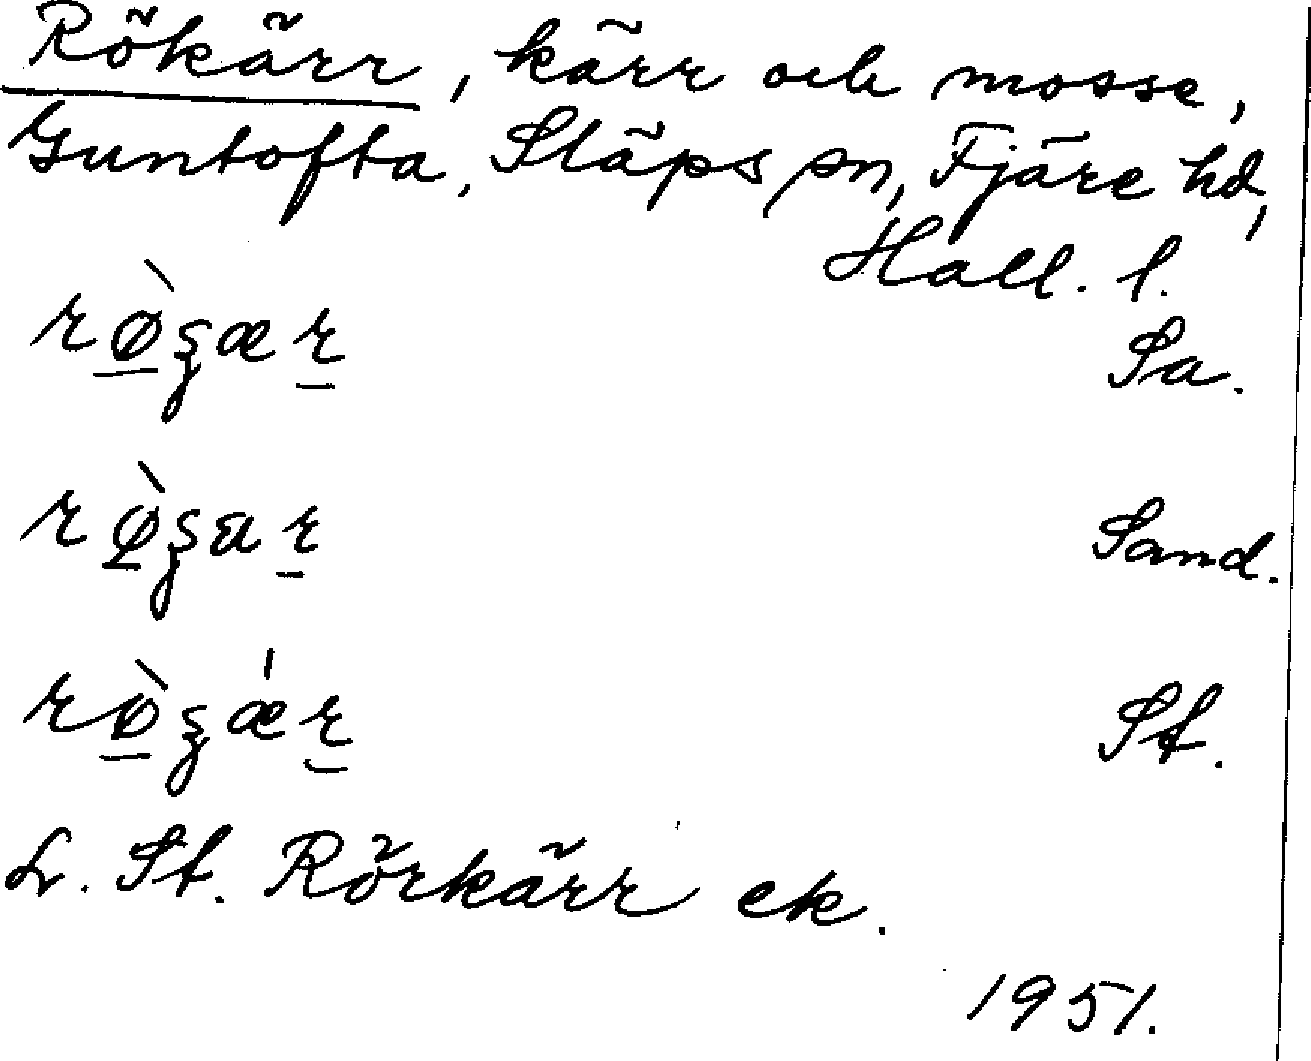 Rökärr, kärr och mosse,
Guntofta, Släps sn, Fjäre hd,
Hall. l.
rø̀ʓær Sa.
rø̀ʓar Sand.
rø̀ʓǽr St.
L. St. Rörkärr ek.
1951.